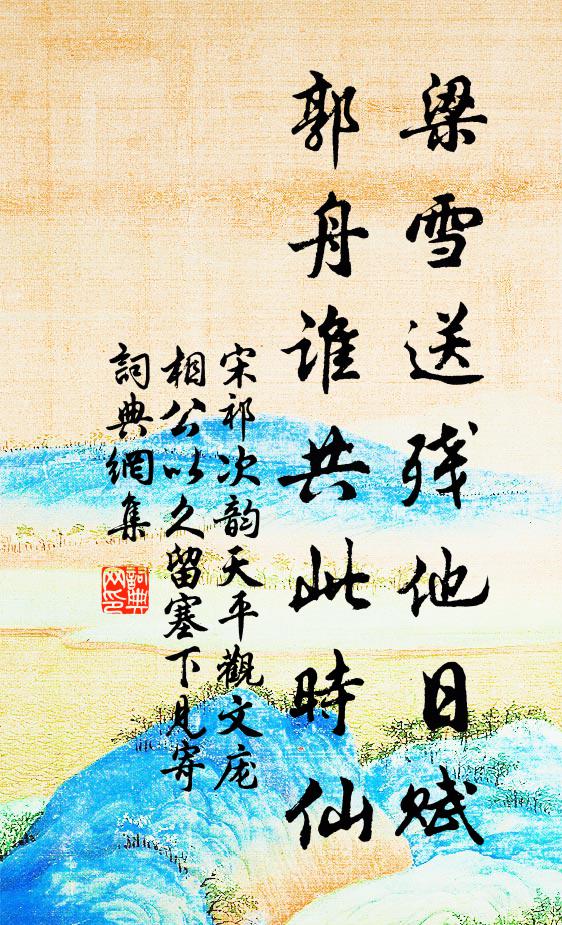 梁雪送残他日赋
郭舟谁共此時仙
宋祁次韵天平觀文庞
相公以久留塞下見寄
詞典網集
詞典网印